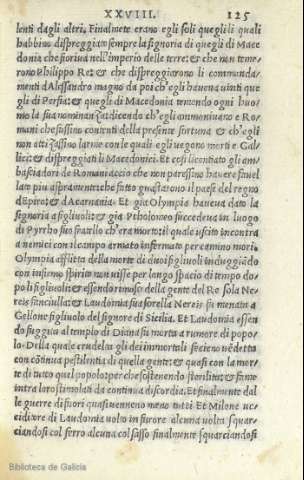 XXVIII. 125
lenti dagli altri, Finalmete erano egli soli quegli li quali
habbino dispreggiato sempre la signoria di quegli di Mace
donia che fioriva nell'imperio delle terre: & che non teme
rono Philippo Re: & che dispreggiorono li commanda
menti d'Alessandro magno da poi ch'egli haueua uinti que
gli di Persia: & quegli di Macedonia temendo ogni huo
mo la sua nominanza: dicendo ch'egli ammoniuano e Ro
mani che fussino contenti della presente fortuna & ch'egli
non attizzassino larme con le quali egli uegono morti e Gal
lici: & dispreggiati li Macedonici. Et cosi licentiato gli am
basciadori de Romani accio che non paressino hauere fauel
lato piu aspramente che fatto guastarono il paese del regno
d'Epiro: & d'Acarnania. Et gia Olympia haueua dato la
signoria a figliuoli: & gia Ptholomeo succedeua in luogo
di Pyrrho suo fratello ch'era morto: il quale uscito incontra
a nemici con il campo armato infermato per camino mori.
Olympia afflitta della morte di duoi figliuoli induggiado
con infirmo spirito non uisse per lungo spacio di tempo do
po li figliuoli: & essendo rimaso della gente del Re sola Ne
reis fanciulla: & Laudomia sua sorella Nereis fu menata a
Gellone figliuolo del signore di Sicilia. Et Laudomia essen
do fuggita al tempio di Diana fu morta a rumore di popo
lo. Della quale crudelta gli dei immortali fecieno uedetta
con cotinua pestilentia di quella gente: & quasi con la mor
te di tutto quel popolo: per che sostenendo sterilita: & fame
intra loro stimolati da continua discordia. Et finalmente dal
le guerre di fuori quasi uennono meno tutti Et Milone uc
ciditore di Laudomia uolto in furore alcuna uolta squar
ciandosi col ferro alcuna col sasso finalmente squarciandosi
Biblioteca de Galicia